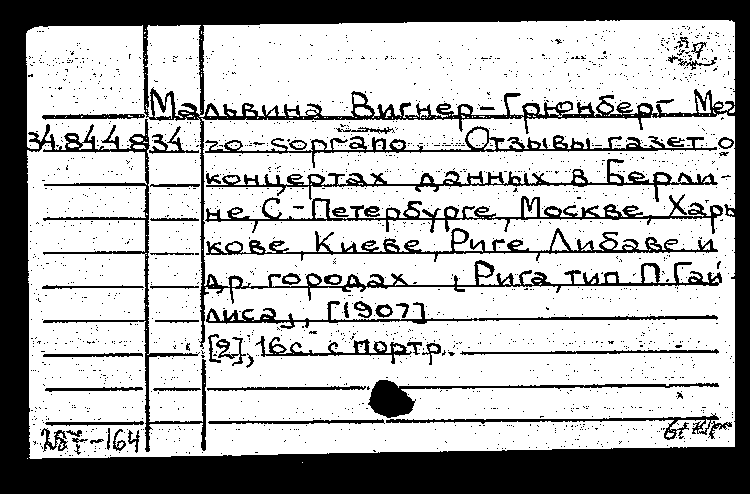 Мальвина Вигнер-Грюнберг Mez
34.84.4.8 34 zo-soprano. Отзывы газет о
концертах данных в Берли-
не, С.-Петербурге, Москве, Харь
кове, Киеве, Риге, Либаве и
др. городах. [Рига, тип П.Гай-
лиса], [1907]
[2], 16с. с портр.
287-164